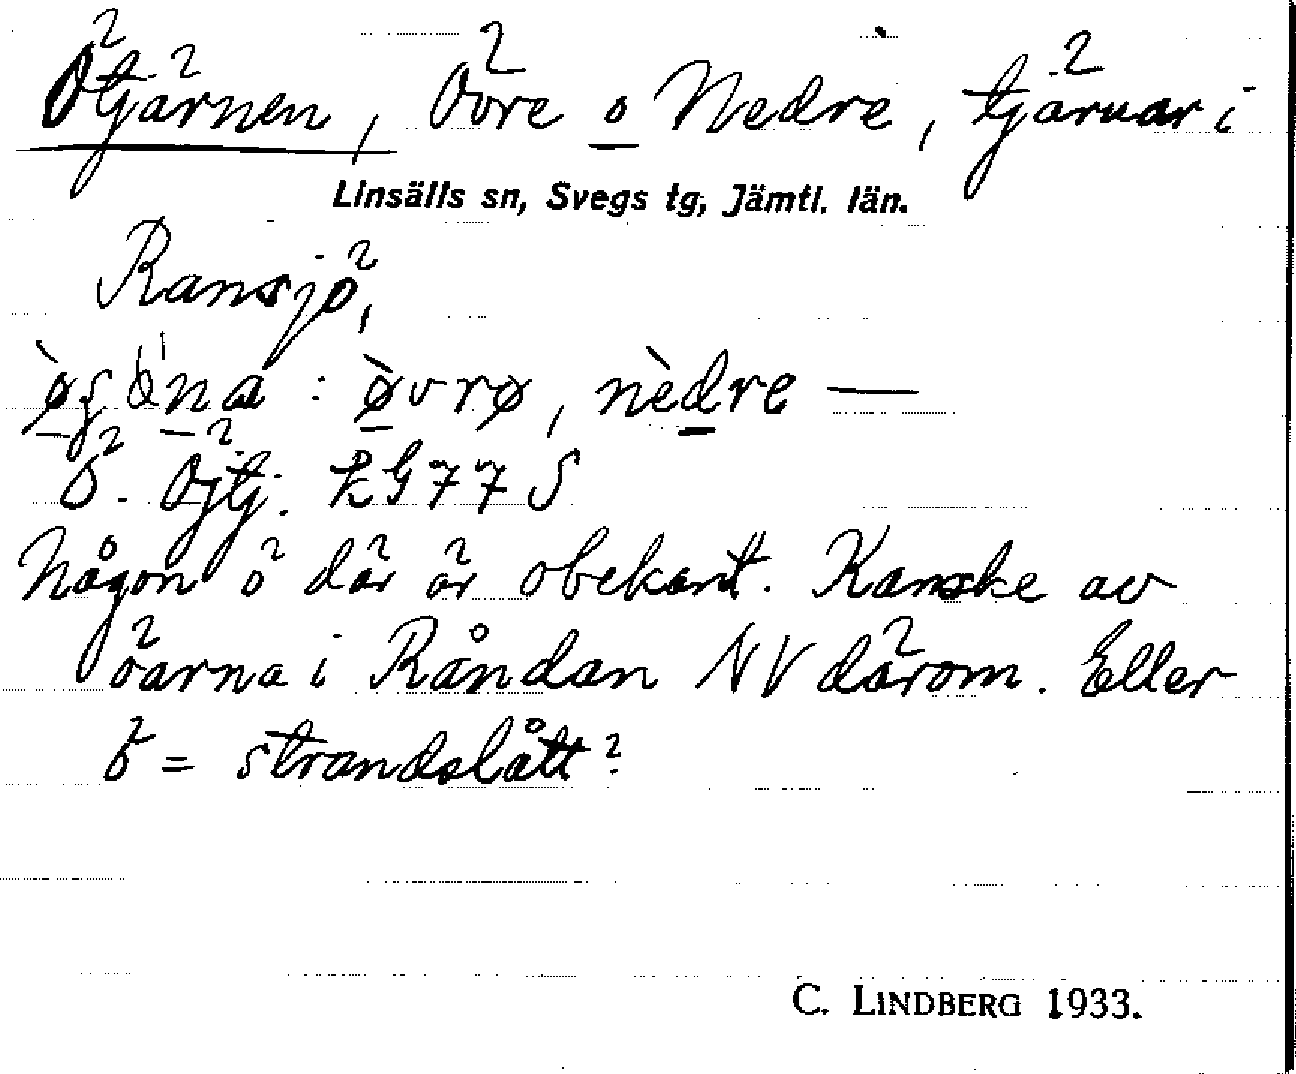 Ötjärnen, Övre o Nedre, tjärnar i
Linsälls sn, Svegs tg, Jämtl. län.
Ransjö,
: øvrø, nèdre —
Ö. Öjtj. EG 77 S
Någon ö där är obekant. Kanske av
öarna i Råndan NV därom. Eller
ö = strandslått?
C. LINDBERG 1933.